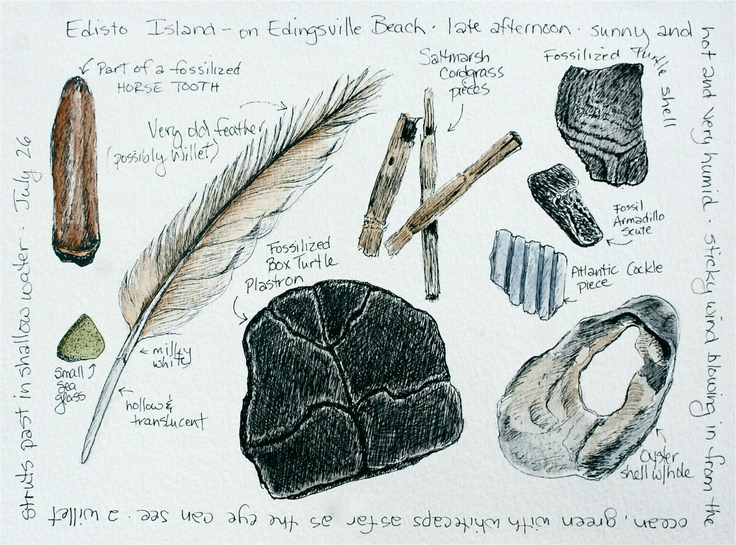 Edisto Island - on Edingsville Beach · late afternoon · sunny and
hot and very humid · sticky wind blowing in from the
ocean, green with whitecaps as far as the eye can see · a willet
struts past in shallow water · July 26
Part of a fossilized
HORSE TOOTH
Very old feather
(possibly Willet)
Saltmarsh
Cordgrass
pieces
Fossilized Turtle shell
Fossil
Armadillo
Scute
Atlantic Cockle
piece
Fossilized
Box Turtle
Plastron
milky
white
hollow &
translucent
Small
sea
glass
Oyster
shell w/hole